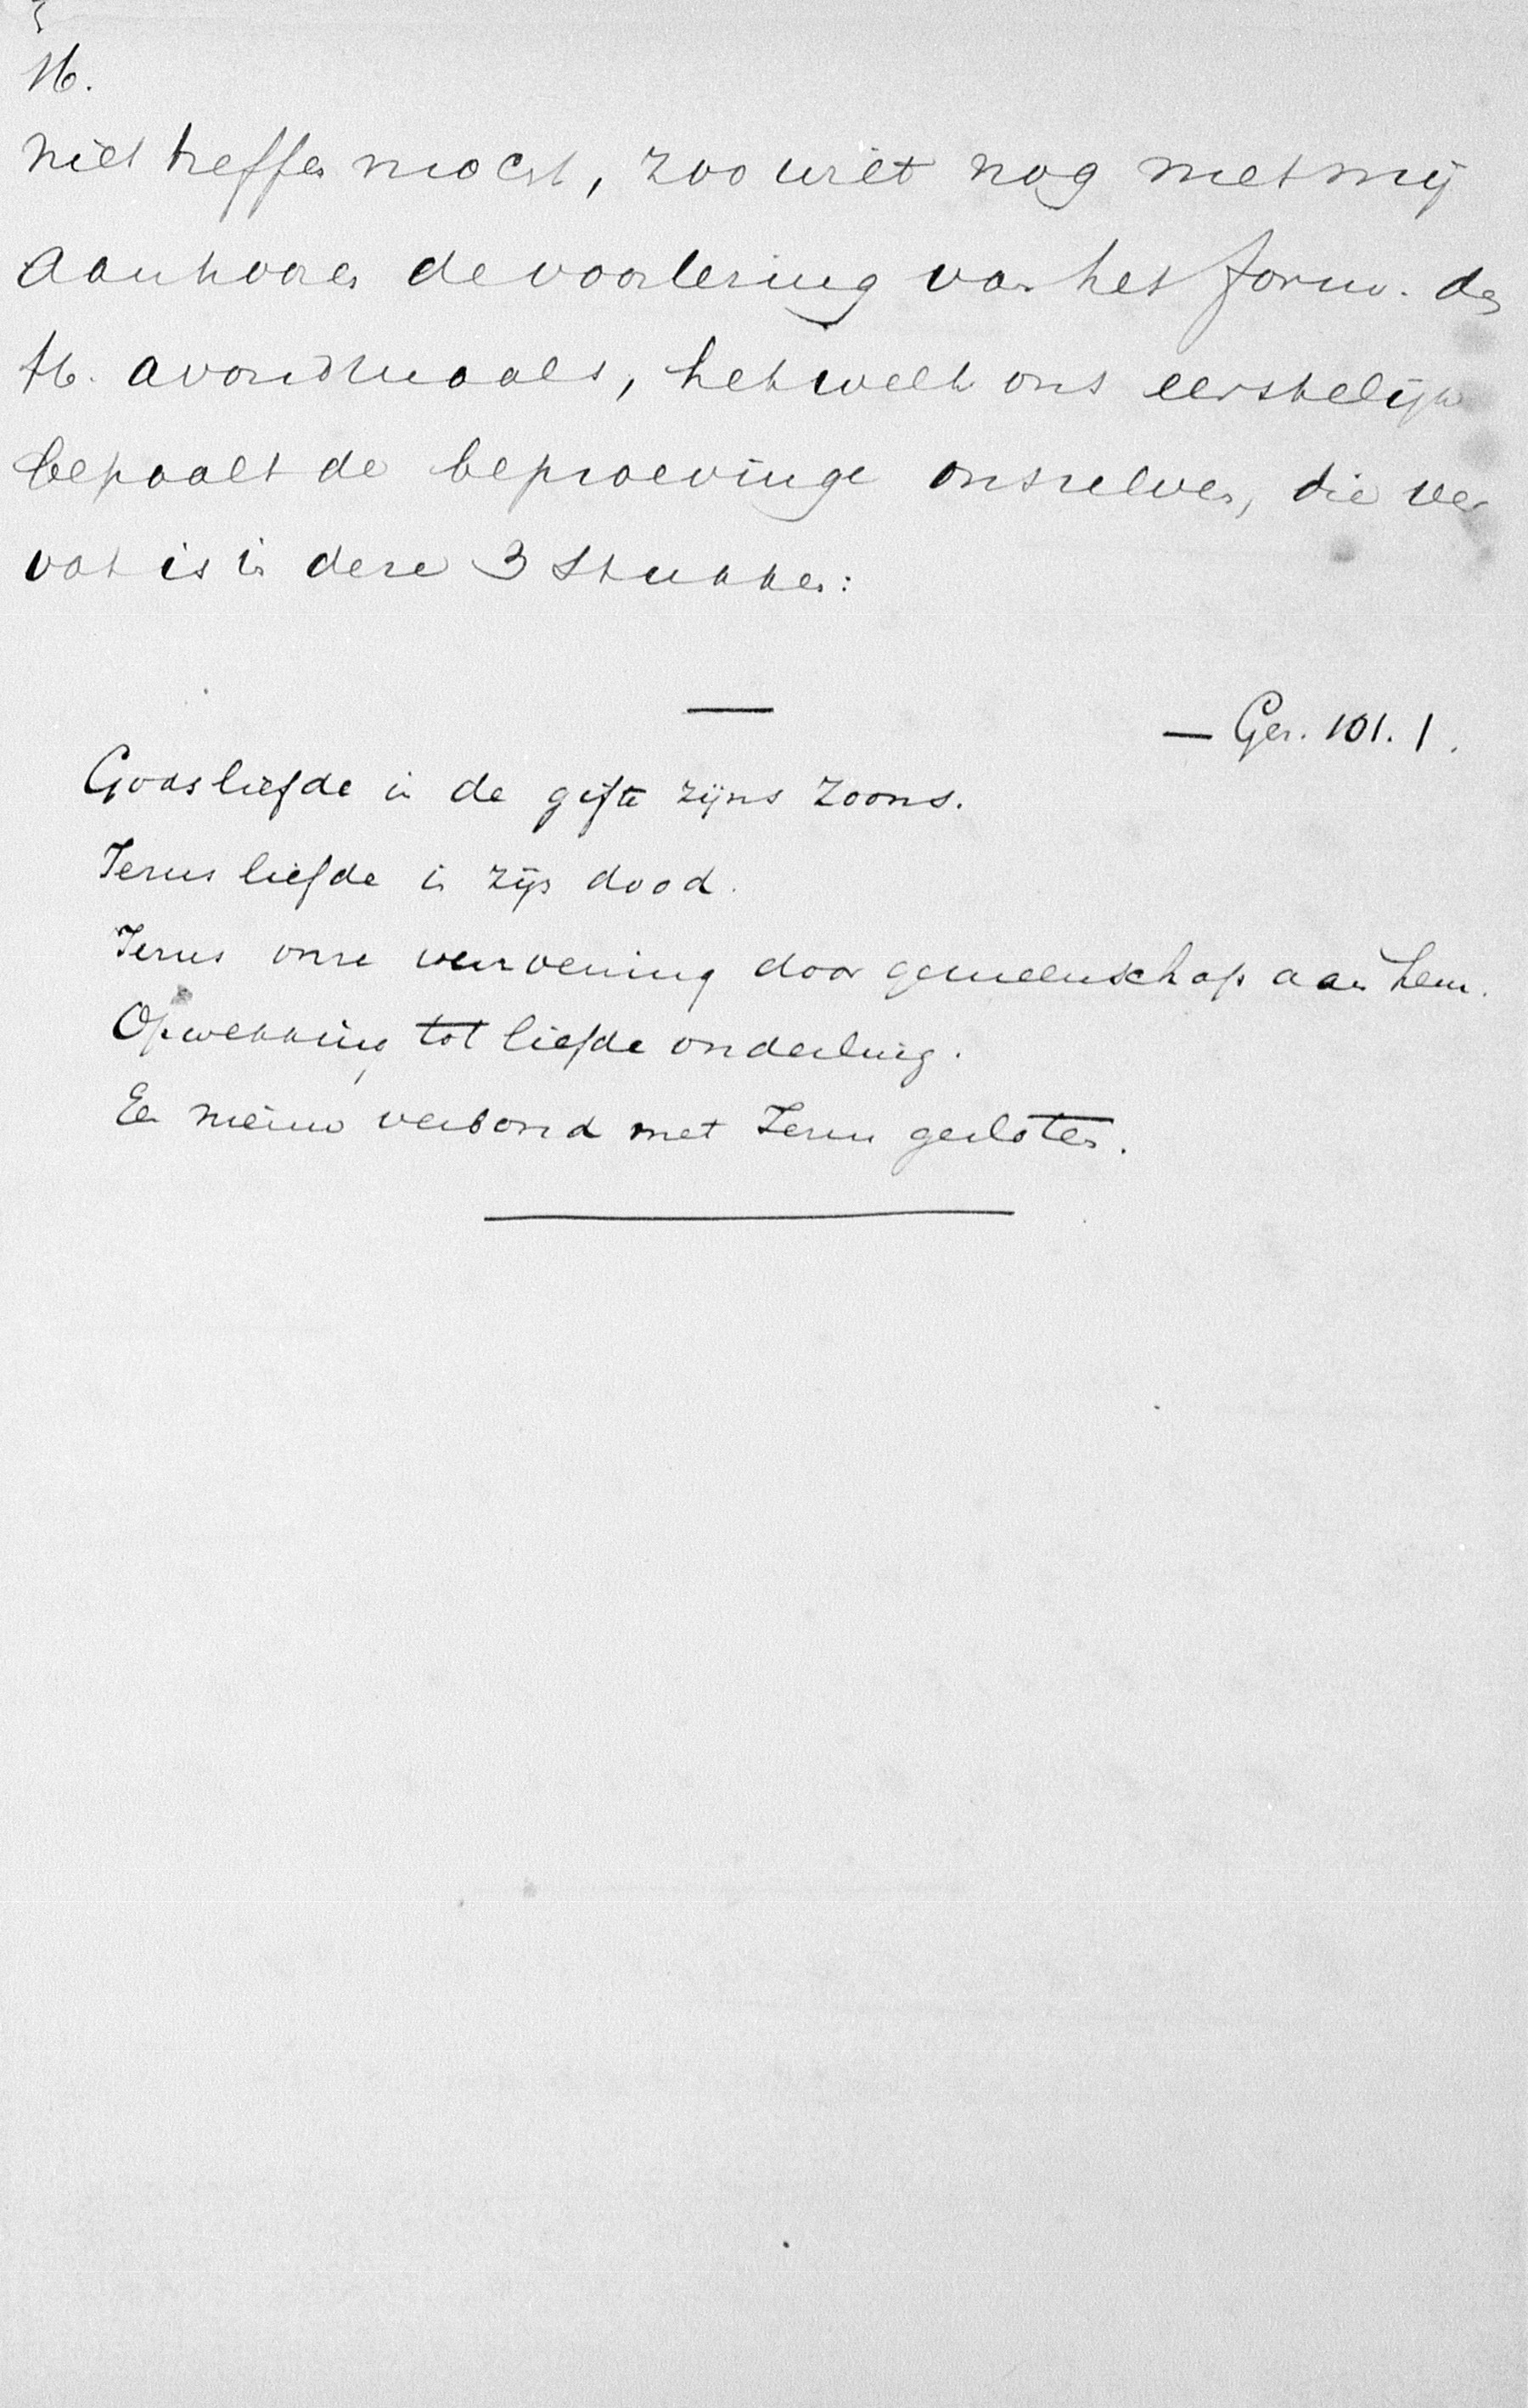 16.
niet treffen moest, zoo wilt nog met mij
aanhooren de voorlezing van het form. des
H. avondmaals, hetwelk ons eerstelijk
bepaalt de beproevinge onszelven, die ver
vat is in deze 3 stukken:
— Gez. 101. 1.
Gods liefde in de gifte zijns Zoons.
Jezus liefde in zijn dood.
Jezus onze verzoening door gemeenschap aan hem.
Opwekking tot liefde onderling.
Een nieuw verbond met Jezus gesloten.